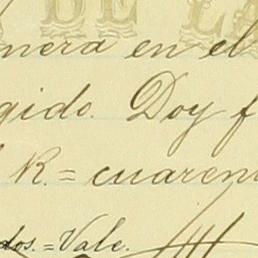 DE LA
nera en el
gido. Doy f
R. = cuaren
dos. = Vale.